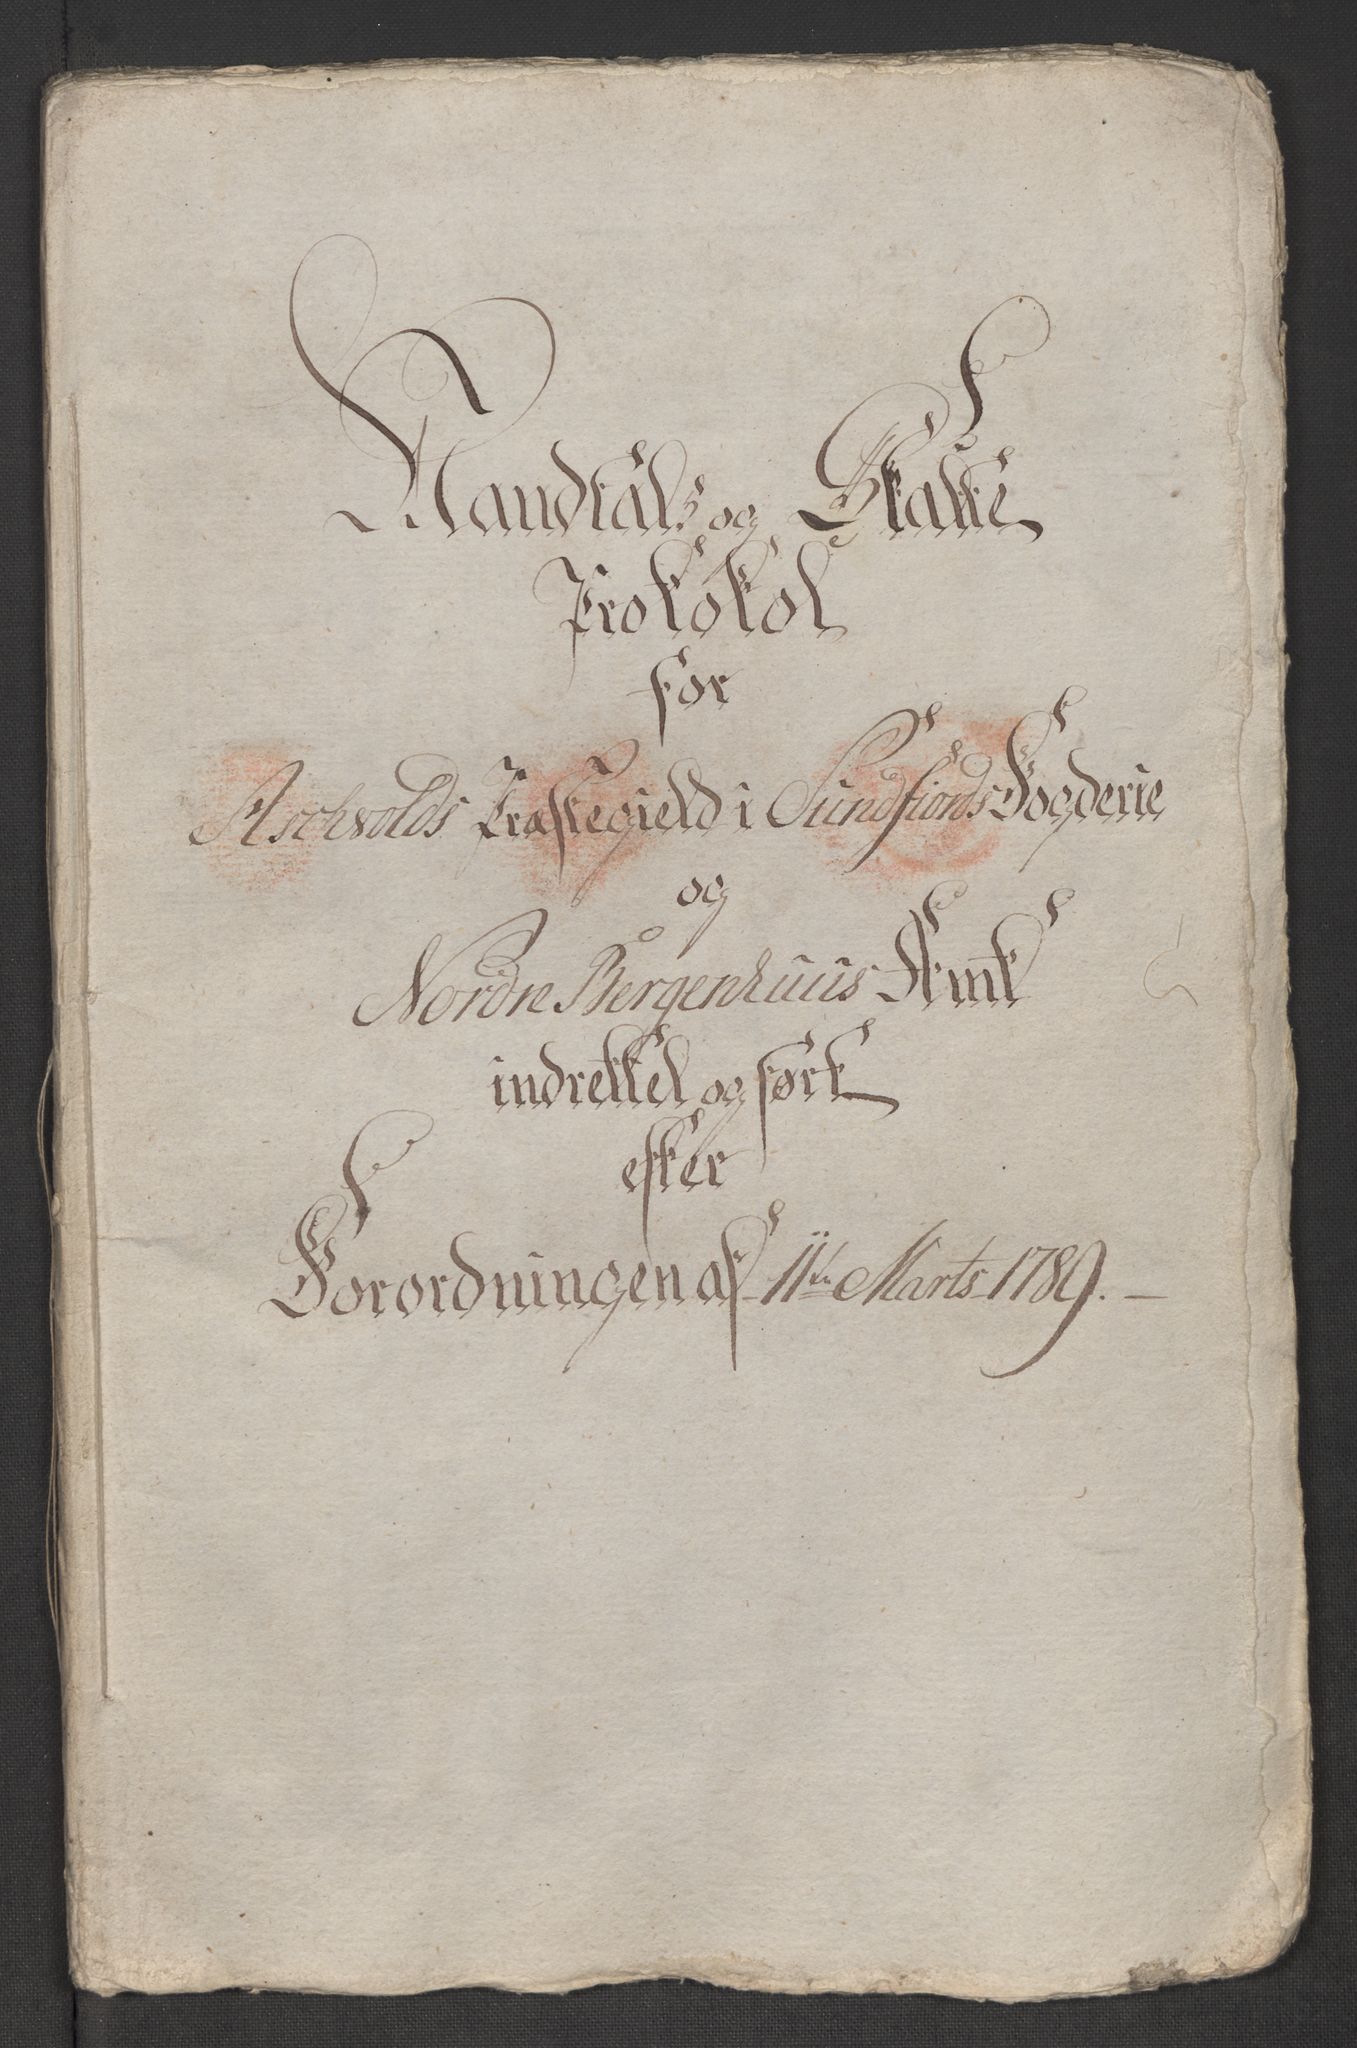 Mandtals og Skatte
Protokol
for
Aschvolds Præstegield i Sundfiords Fogderie
og
Nordre Bergenhuus Amt
indrettet og ført
efter
Forordningen af 11te Marts 1789. —